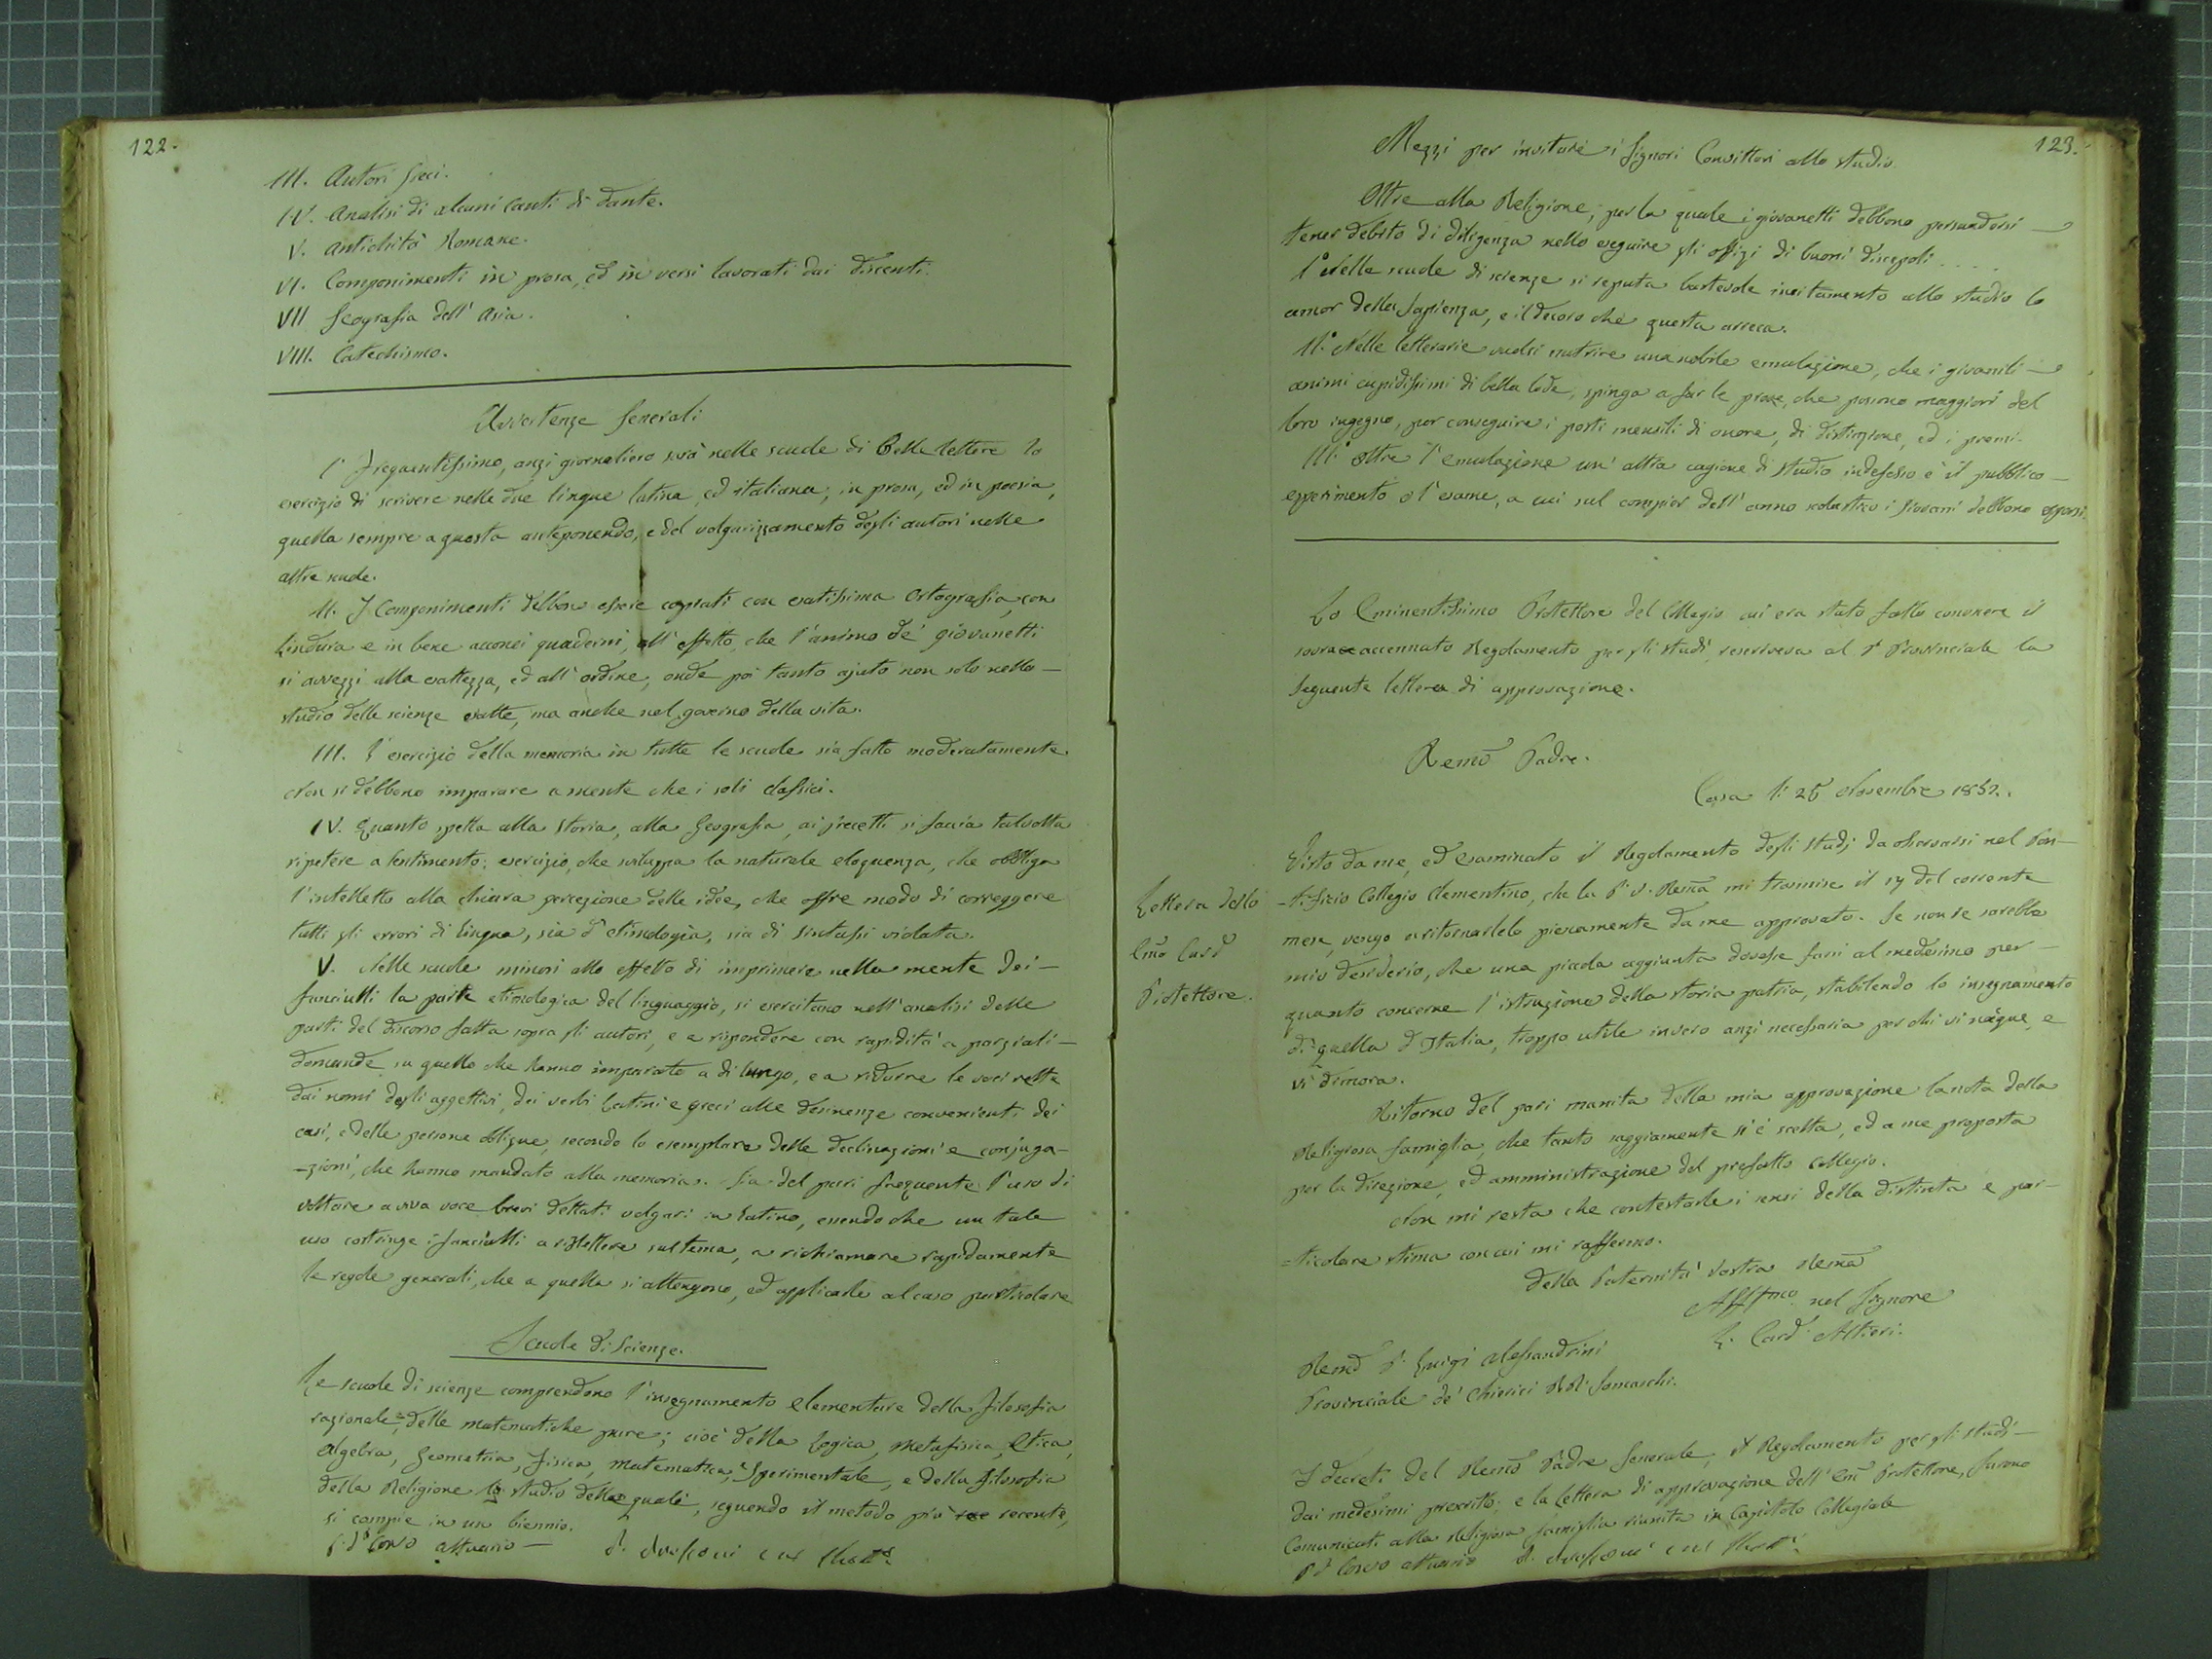 122.
III. Autori Greci.
IV. Analisi di alcuni Canti di Dante.
V. Antichità Romane.
VI. Componimenti in prosa, ed in versi lavorati dai discenti.
VII Geografia dell' Asia.
VIII. Catechismo.
Avvertenze Generali
I° Frequentissimo, anzi giornaliero sarà nelle scuole di Belle lettere lo
esercizio di scrivere nelle due lingue latina, ed italiana; in prosa, ed in poesia,
quella sempre a questa anteponendo, e del volgarizzamento degli autori nelle
altre scuole.
II. I Componimenti debbon essere copiati con esatissima Ortografia, con
lindura e in bene acconci quaderni, all' effetto, che l'animo de' giovanetti
si avvezzi alla esattezza, ed all' ordine, onde poi tanto ajuto non solo nello
studio delle scienze esatte, ma anche nel governo della vita.
III. L'esercizio della memoria in tutte le scuole sia fatto moderatamente.
Non si debbono imparare a mente che i soli classici.
IV. Quanto spetta alla Storia, alla Geografia, ai precetti si faccia talvolta
ripetere a sentimento; esercizio, che sviluppa la naturale eloquenza, che obbliga
l'intelletto alla chiara percezione delle idee, che offre modo di correggere
tutti gli errori di lingua, sia d' etimologia, sia di sintassi violata.
V. Nelle scuole minori allo effetto di imprimere nella mente dei
fanciulli la parte etimologica del linguaggio, si esercitano nell' analisi delle
parti del discorso fatta sopra gli autori, e a rispondere con rapidità a parziali
domande su quello che hanno imparato a di lungo, e a ridurre le voci rette
dai nomi degli aggettivi, dei verbi latini e greci alle desinenze convenienti dei
casi, e delle persone oblique, secondo lo esemplare delle declinazioni e conjuga-
-zioni, che hanno mandato alla memoria. Sia del pari frequente l'uso di
voltare a viva voce brevi dettati volgari in latino, essendo che un tale
uso costringe i fanciulli a riflettere sul tema, a richiamare rapidamente
le regole generali, che a quello si attengono, ed applicarle al caso particolare
Scuole di Scienze.
Le scuole di scienze comprendono l'insegnamento elementare della filosofia
razionale, e delle matematiche pure; cioè della Logica, Metafisica, Etica,
Algebra, Geometria, Fisica, Matematica, e Sperimentale, e della filosofia
della Religione lo studio delle quali, seguendo il metodo più recente,
si compie in un biennio.
P. D. Corso attuario
123.
Mezzi per invitare i Signori Convittori allo studio.
Oltre alla Religione, per la quale i giovanetti debbono persuadersi
tener debito di diligenza nello eseguire gli offizi di buoni discepoli ....
I° Nelle scuole di scienze si reputa bastevole incitamento allo studio lo
amor della Sapienza, e il decoro che questa arreca.
II.° Nelle letterarie vuolsi nutrire una nobile emulazione, che i giovanili
animi cupidissimi di bella lode, spinga a far le prove, che possono maggiori del
loro ingegno, per conseguire i posti mensili di onore, di distinzione, ed i premi.
III.° Oltre l' emulazione un' altra cagione di studio indefesso è il pubblico
esperimento o l' esame, a cui sul compier dell' anno scolastico i Giovani debbono esporsi.
Lo Eminentissimo Protettore del Collegio cui era stato fatto conoscere il
sovra accennato Regolamento per gli studi, rescriveva al P. Provinciale la
seguente lettera di approvazione.
Remõ Padre.
Casa li 25 Novembre 1852.
Lettera dello
Emo Card
Protettore.
Visto da me, ed esaminato il Regolamento degli studj da osservarsi nel Pon-
-tificio Collegio Clementino, che la P. V. Remã mi trasmise il 17 del corrente
mese, vengo a ritornarlelo pienamente da me approvato. Se non se sarebbe
mio desiderio, che una piccola aggiunta dovesse farsi al medesimo per
quanto concerne l' istruzione della storia patria, stabilendo lo insegnamento
di quella d' Italia, troppo utile invero anzi necessaria per chi vi nacque, e
vi dimora.
Ritorno del pari munita della mia approvazione la nota della
Religiosa famiglia, che tanto saggiamente si è scelta, ed a me proposta
per la direzione, ed amministrazione del prefatto Collegio.
Non mi resta che contestarle i sensi della distinta e par-
=ticolare stima con cui mi raffermo.
Della Paternità Vostra Remã
Affmo nel Signore
L. Card. Altieri.
Remõ P. Luigi Alessandrini
Provinciale de' Chierici RR. Somaschi.
I decreti del Remõ Padre Generale, il Regolamento per gli studi
dai medesimi prescritto; e la Lettera di approvazione dell' Emõ Protettore, furono
Comunicati alla religiosa famiglia riunita in Capitolo Collegiale
P. D. Corso attuario